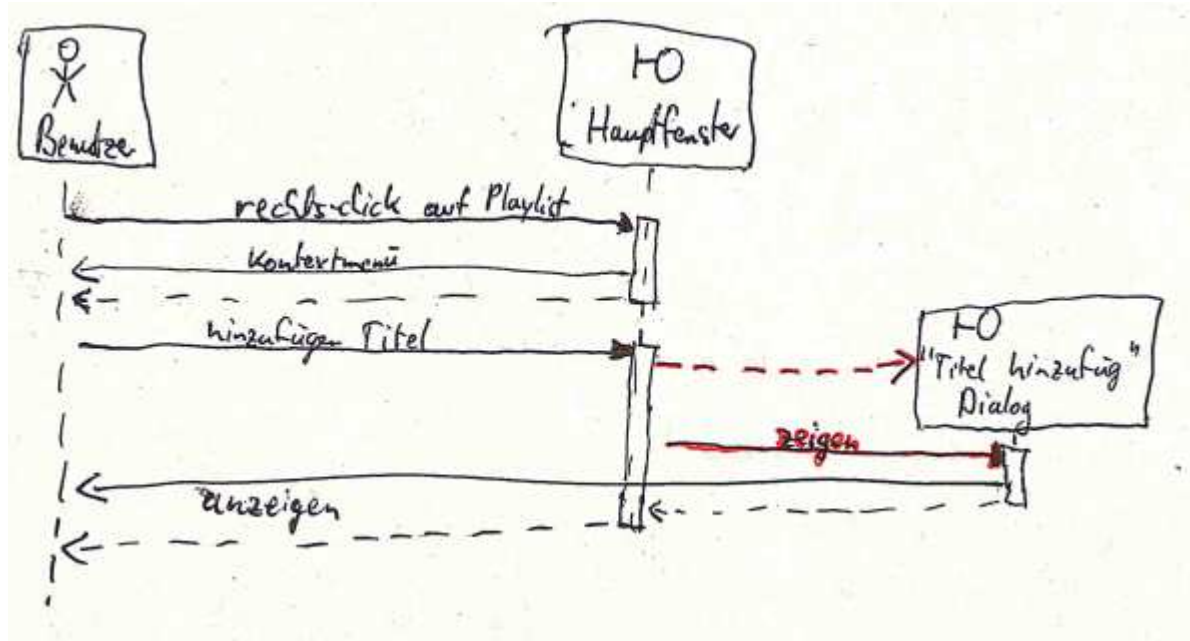 Benutzer
Hauptfenster
rechts-click auf Playlist
Kontextmenü
hinzufügen Titel
"Titel hinzufüg"
Dialog
zeigen
anzeigen